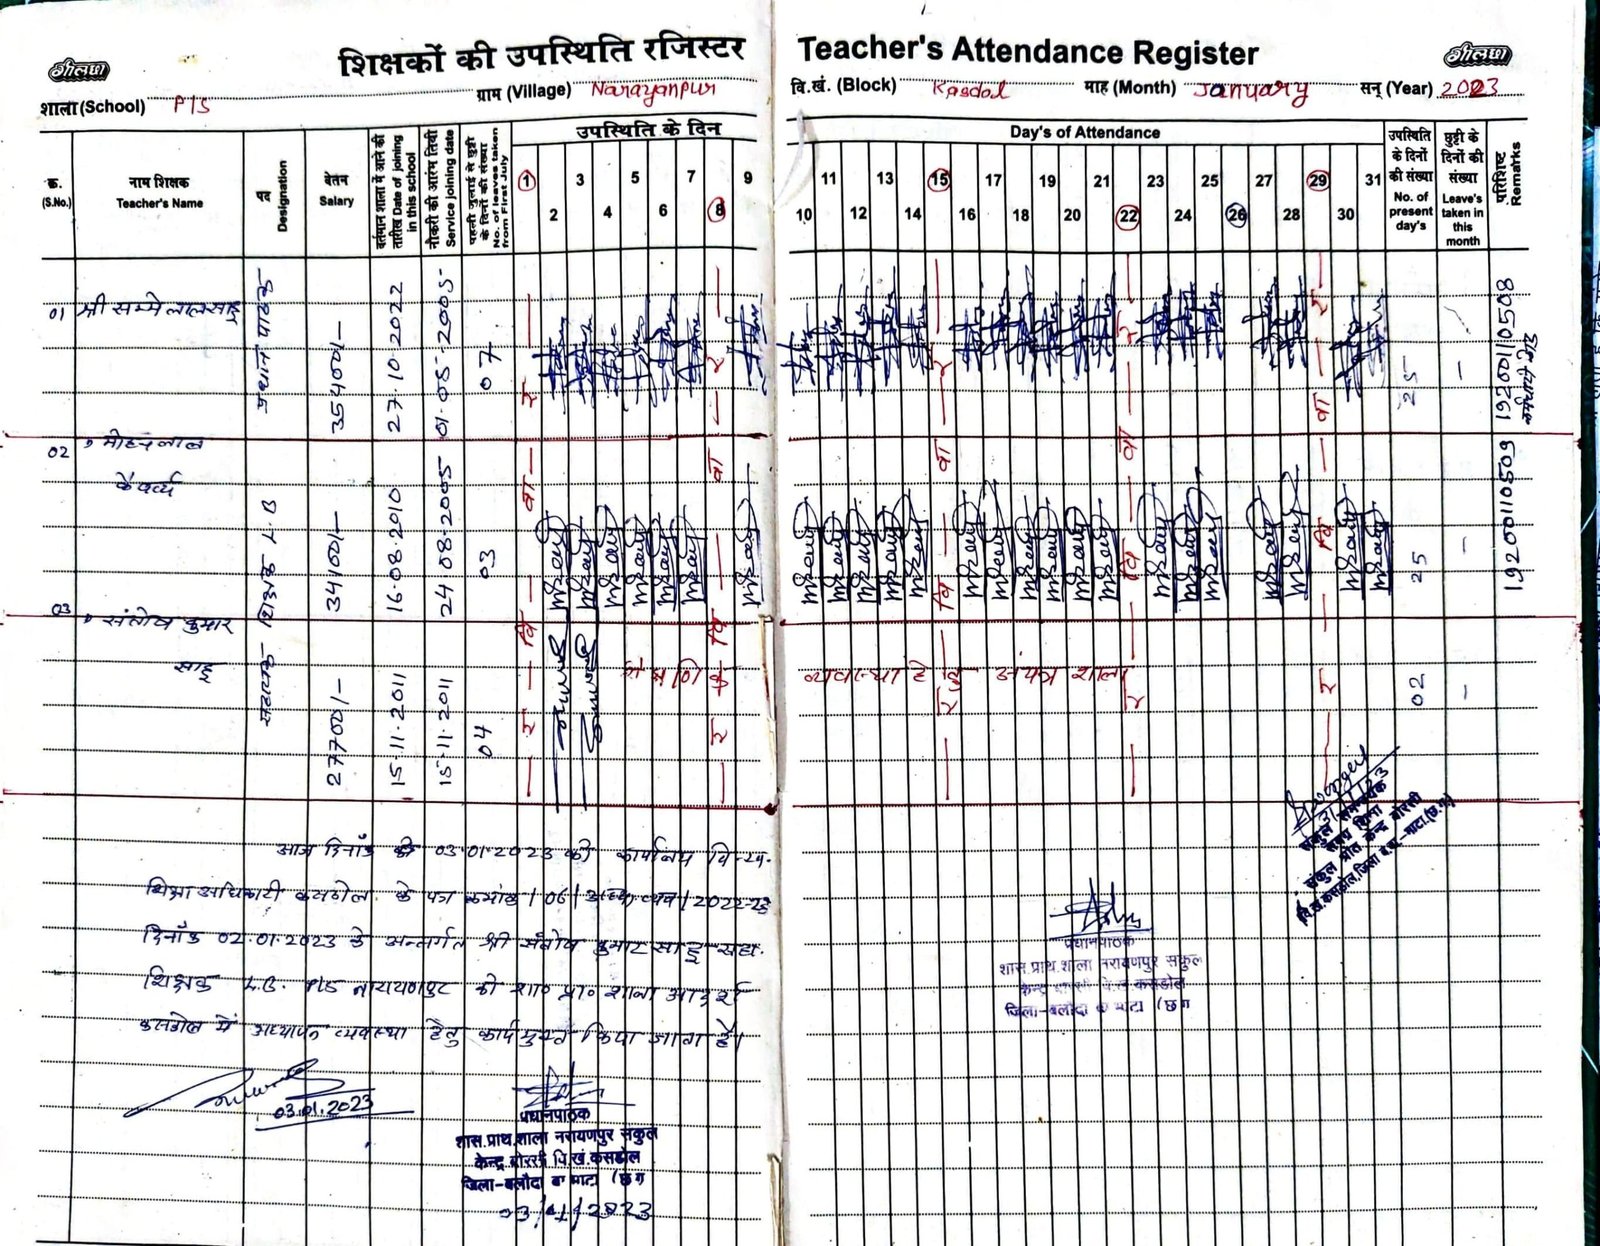 शिक्षकों की उपस्थिति रजिस्टर Teacher's Attendance Register
शाला (School) P/S ग्राम (Village) Narayanpur वि.खं. (Block) Kasdol माह (Month) January सन् (Year) 2023
क्र. (S.No.)
नाम शिक्षक Teacher's Name
पद Designation
वेतन Salary
वर्तमान शाला में आने की तारीख Date of joining in this school
नौकरी की आरंभ तिथी Service joining date
पहली जुलाई से छुट्टी के दिनों की संख्या No. of leaves taken from First July
उपस्थिति के दिन Day's of Attendance
1 2 3 4 5 6 7 8 9 10 11 12 13 14 15 16 17 18 19 20 21 22 23 24 25 26 27 28 29 30 31
उपस्थिति के दिनों की संख्या No. of present day's
छुट्टी के दिनों की संख्या Leave's taken in this month
परिशिष्ट Remarks
01 श्री सम्मेलाल साहू प्रधान पाठक 35400/- 27.10.2022 01-08-2005 07 25 - 19200110508
02 " मोहनलाल कैवर्त्य शिक्षक L.B 34100/- 16.08.2010 24-08-2005 03 25 - 19200110509
03 " संतोष कुमार साहू सहायक 27700/- 15.11.2011 15.11.2011 04 02 -
र वि वा र
व्यवस्था हेतु अन्यत्र शाला
आज दिनाँक को 03.01.2023 को कार्यालय वि.ख.
शिक्षा अधिकारी कसडोल के पत्र क्रमांक / 06 / अध्या.व्यव / 2022-23
दिनाँक 02.01.2023 के अन्तर्गत श्री संतोष कुमार साहू सहा.
शिक्षक L.B. P/S नारायणपुर को शा० प्रा० शाला आदर्श
कसडोल में अध्यापन व्यवस्था हेतु कार्यमुक्त किया जाता है।
03.01.2023
प्रधानपाठक
शास.प्राथ.शाला नरायणपुर संकुल
केन्द्र बोरसी वि.खं.कसडोल
जिला-बलौदा बा भाटा (छ.ग
03/01/2023
प्रधानपाठक
शास.प्राथ.शाला नरायणपुर संकुल
केन्द्र वि.खं. कसडोल
जिला-बलौदा बा भाटा (छ.ग
संकुल समन्वयक
संकुल स्रोत केन्द्र बोरसी
वि.खं.कसडोल, जिला ब.बा.-भाटा.(छ.ग.)